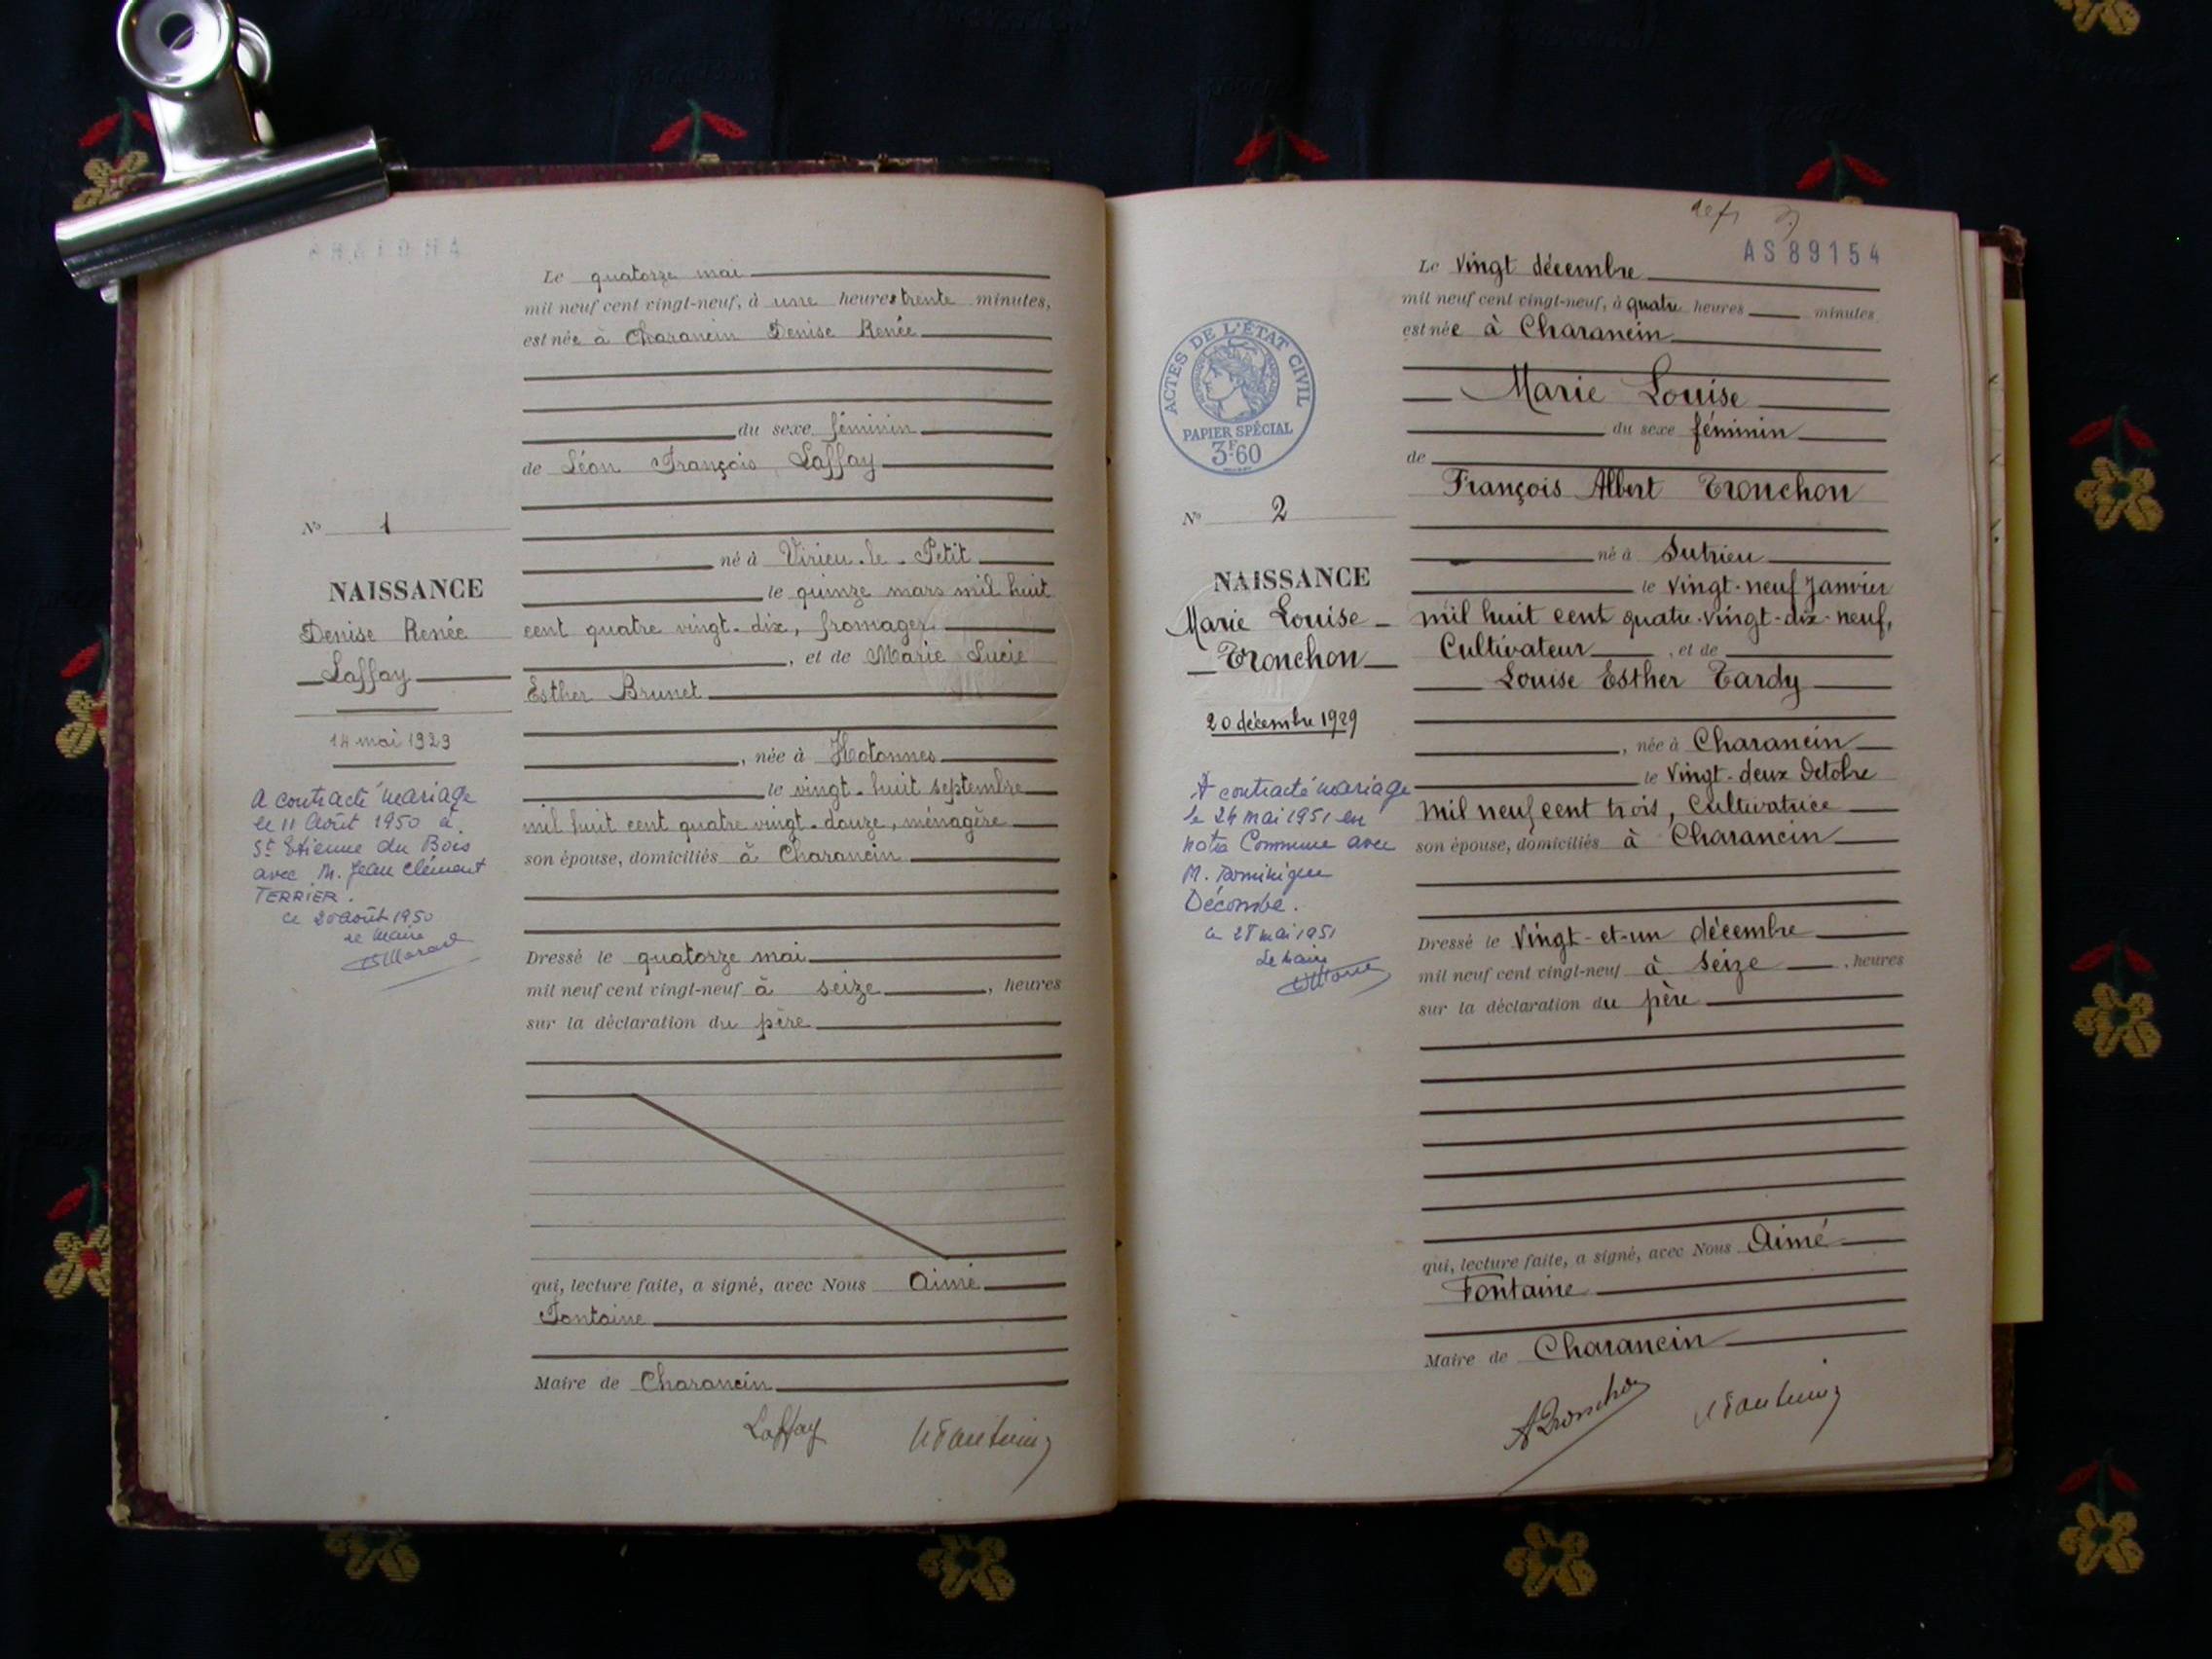 Le quatorze mai
mil neuf cent vingt-neuf, à une heures trente minutes,
est née à Charancin Denise Renée
du sexe féminin
de Léon François Laffay
né à Virieu-le-Petit
le quinze mars mil huit
cent quatre vingt-dix, fromager
, et de Marie Lucie
Esther Brunet
, née à Hotonnes
le vingt-huit septembre
mil huit cent quatre vingt-douze, ménagère
son épouse, domiciliés à Charancin
Dressé le quatorze mai
mil neuf cent vingt-neuf à seize, heures
sur la déclaration du père
qui, lecture faite, a signé, avec Nous Aimé
Fontaine
Maire de Charancin
Laffay
N° 1
NAISSANCE
Denise Renée
Laffay
14 mai 1929
A contracté mariage
le 11 Août 1950 à
St Etienne du Bois
avec M. Jean Clément
TERRIER.
ce 20 août 1950
Le Maire
AS 89154
Le Vingt décembre
mil neuf cent vingt-neuf, à quatre heures minutes
est née à Charancin
Marie Louise
du sexe féminin
de
François Albert Tronchon
né à Sutrieu
le Vingt-neuf Janvier
mil huit cent quatre-vingt-dix-neuf,
Cultivateur, et de
Louise Esther Tardy
, née à Charancin
le Vingt-deux Octobre
mil neuf cent trois, Cultivatrice
son épouse, domiciliés à Charancin
Dressé le Vingt-et-un décembre
mil neuf cent vingt-neuf à seize, heures
sur la déclaration du père
qui, lecture faite, a signé, avec Nous Aimé
Fontaine
Maire de Charancin
A Tronchon
ACTES DE L'ÉTAT CIVIL
PAPIER SPÉCIAL
3F60
N° 2
NAISSANCE
Marie Louise
Tronchon
20 décembre 1929
A contracté mariage
le 24 mai 1951 en
notre Commune avec
M. Dominique
Décombe.
ce 28 mai 1951
Le Maire